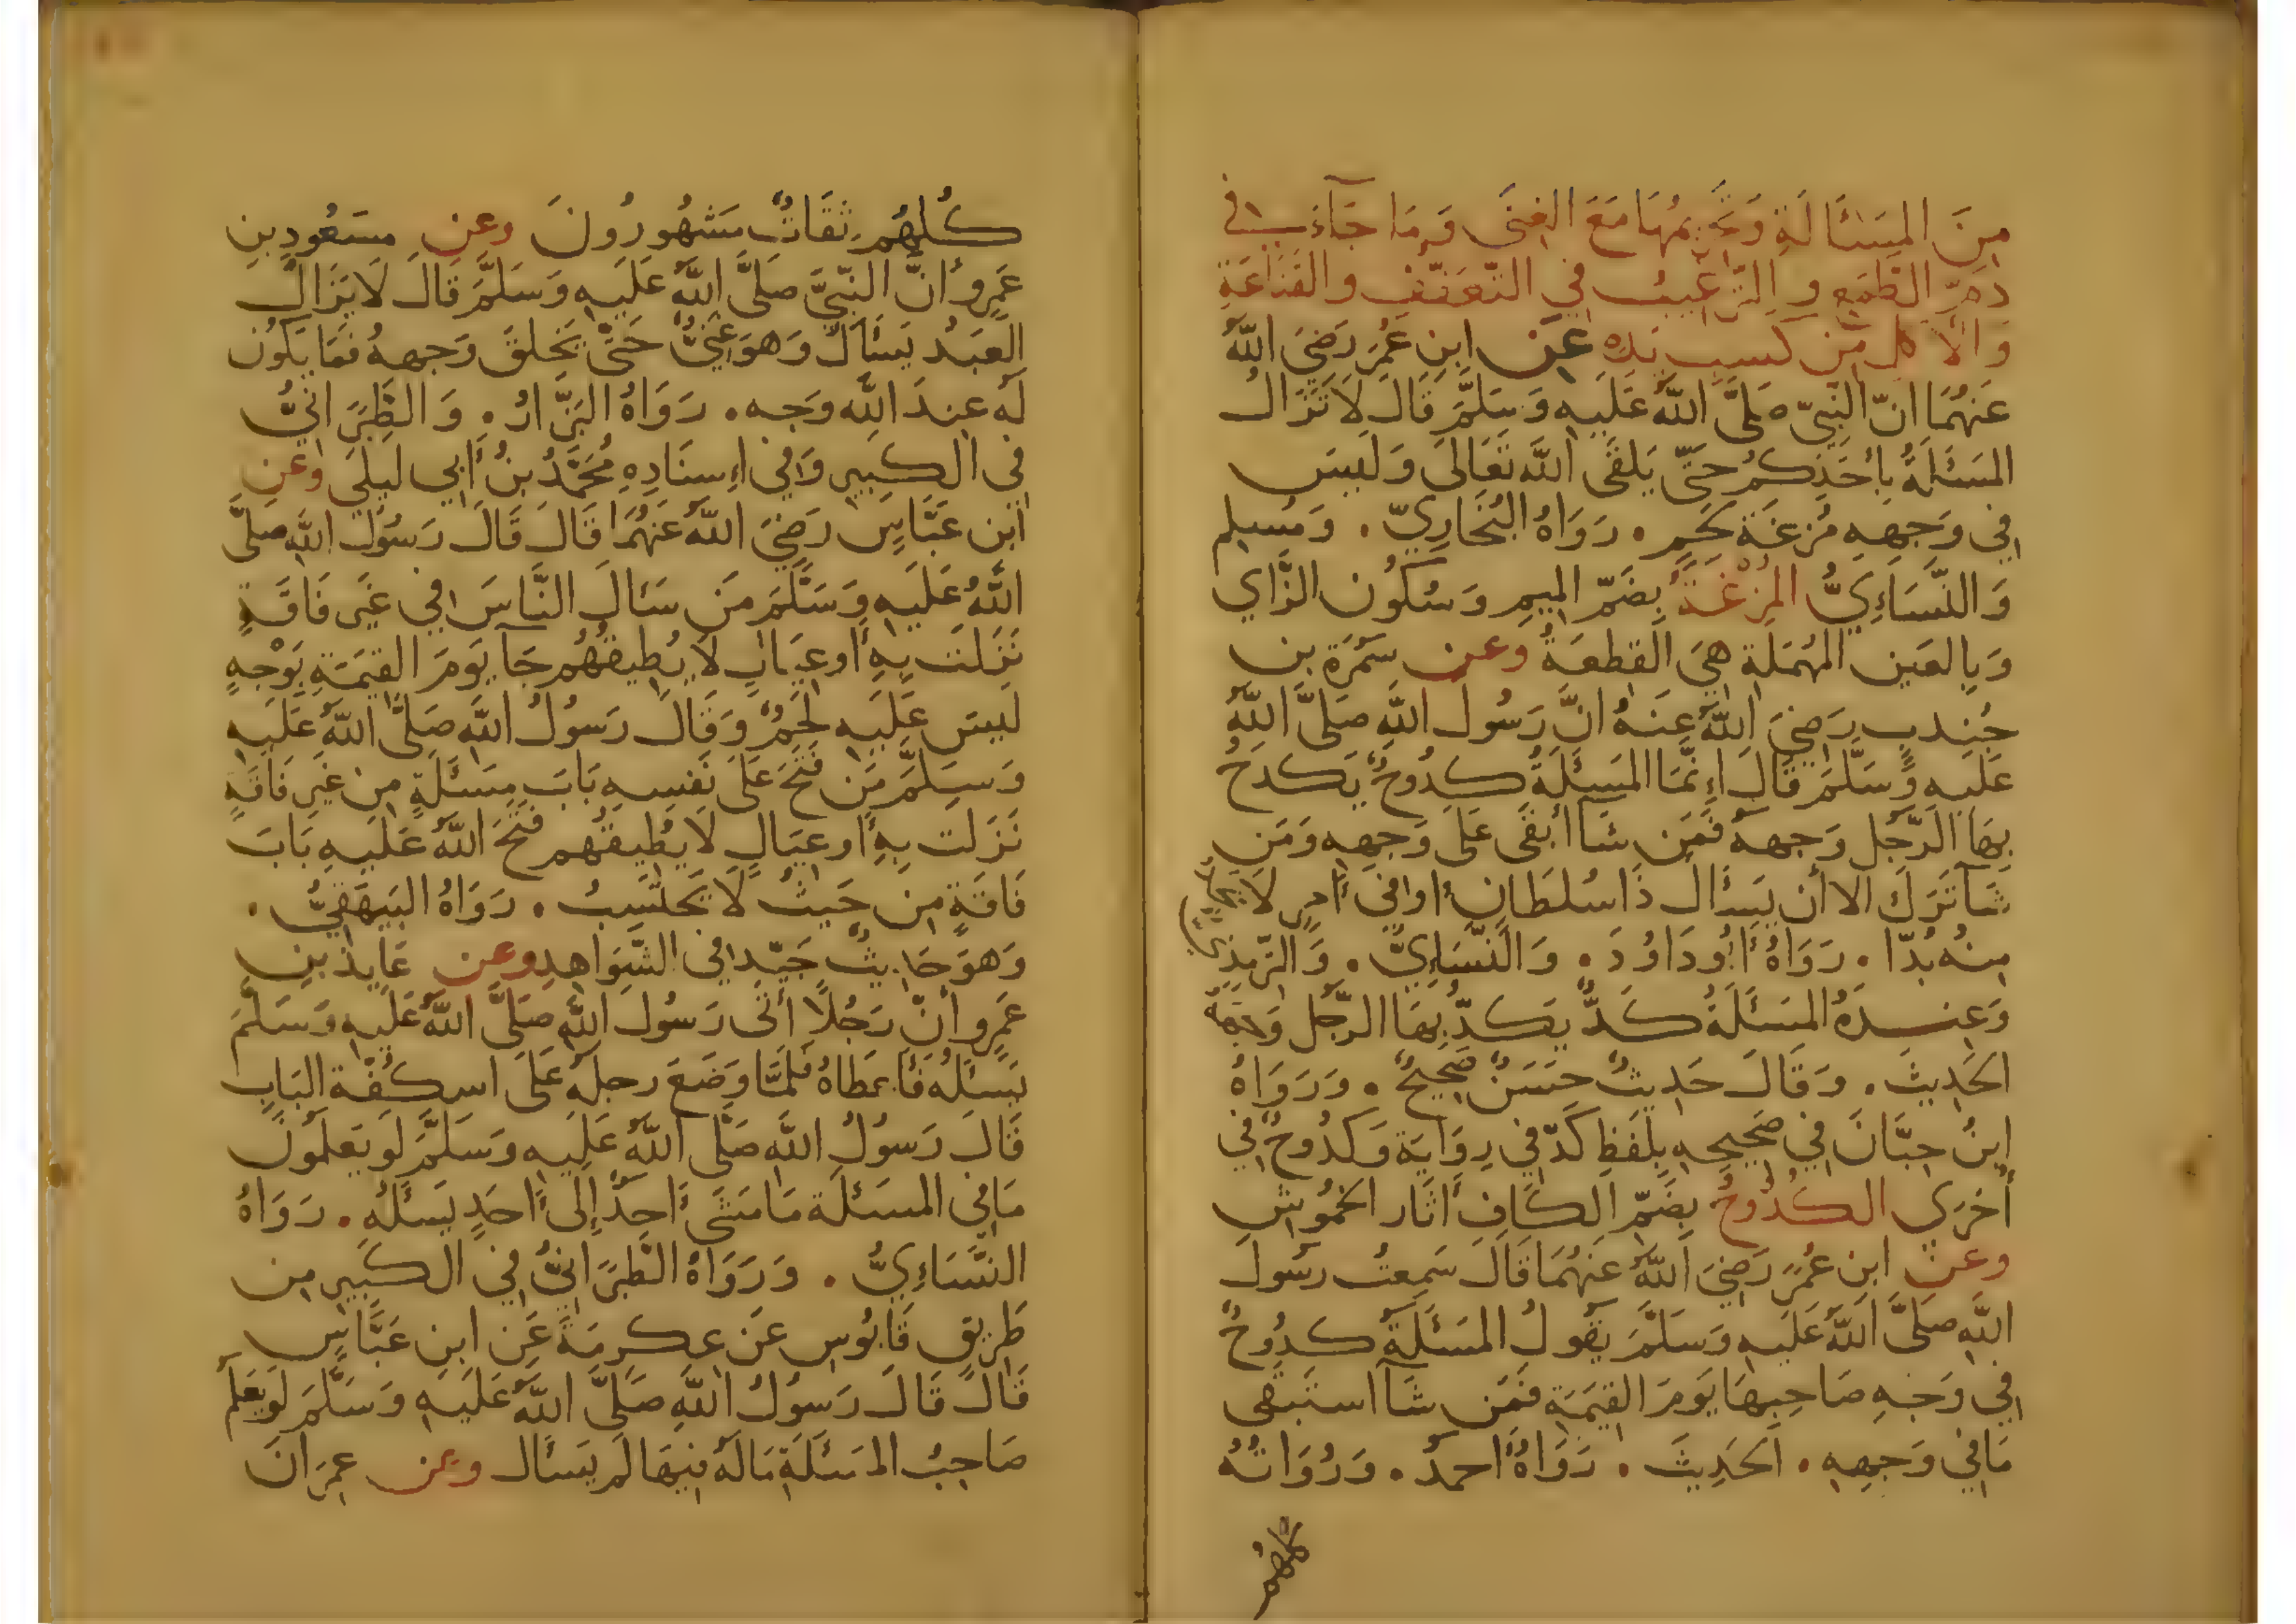 مِنَ المَسْئَالَةِ وَتَحرِيمُهَا مَعَ الغِنَى وَمَا جَاءَ فِي
ذَمِّ الطَّمَعِ وَالتَّرَاغِيبُ فِي التَّعَفّفِ وَالقَنَاعَةِ
وَالأَكلِ مِن كَسبِ يَدِهِ عَن ابنِ عُمَرَ رَضِيَ اللَّهُ
عَنهُمَا انّ النَّبِيّ صَلَّى اللَّهُ عَلَيهِ وَسَلَّمَ قَالَ لَا تَزَالُ
المَسْئَلَةُ بِأَحَدِكُم حَتَّى يَلقَى اللَّه تَعَالَى وَلَيسَ
فِي وَجهِهِ مُزعَة لَحمٍ . رَوَاهُ البُخَارِيّ . وَمُسلِم
وَالنَّسَاءِيُّ المُزْعَةُ بِضَمّ المِيمِ وَسُكُون الزَّاي
وَبِالعَين المُهمَلَة هِيَ القِطعَةُ وعن سَمُرَة بن
جُندبٍ رَضِيَ اللَّهُ عَنهُ انَّ رَسُول اللَّهِ صَلَّى اللَّهُ
عَلَيهِ وَسَلَّمَ قَالَ اِنَّمَا المَسئَلَةُ كُدُوحٌ يَكدَحُ
بِهَا الرَّجُل وَجههُ فَمَن شَآ أَبقَى عَلَى وَجهِهِ وَمَن
شَآ تَرَكَ الا أَن يَسئَالَ ذَا سُلطَانٍ أَو فِي أَمرٍ لَا يَجِدُ
مِنهُ بُدّا . رَوَاهُ أَبُو دَاوُدَ . وَالنَّسَاءِيُّ . وَالتِّرمِذِيّ
وَعِندَهُ المَسئَلَةُ كَدٌّ يَكدّ بِهَا الرَّجُل وَجههُ
الحَدِيثَ . وَقَالَ حَدِيثٌ حَسَنٌ صَحِيحٌ . وَرَوَاهُ
ابنُ حِبَّانَ فِي صَحِيحِهِ بِلَفظِ كَدّ فِي رِوَايَة وَكُدُوحٌ فِي
أُخرَي الكُدُوحُ بِضَمِّ الكَافِ أَثَار الخُمُوشِ
وعن ابنِ عُمَرَ رَضِيَ اللَّهُ عَنهُمَا قَالَ سَمِعتُ رَسُولَ
اللَّهِ صَلَّى اللَّهُ عَلَيهِ وَسَلَّمَ يَقُولُ المَسئَلَةُ كُدُوحٌ
فِي وَجهِ صَاحِبِهَا يَومَ القِيمَةِ فَمَن شَآ استَبقَى
مَا فِي وَجهِهِ . الحَدِيثَ . رَوَاهُ أَحمدُ . وَرُوَاتُهُ
كلهم
كُلُّهُم ثِقَاتٌ مَشهُورُونَ وعن مَسعُودِ بنِ
عَمرٍو أَنَّ النَّبِيَّ صَلَّى اللَّهُ عَلَيهِ وَسَلَّمَ قَالَ لَا يَزَالُ
العَبدُ يَسئَالُ وَهوَ غَنِيٌّ حَتَّى يَخلَقَ وَجههُ فَمَا يَكُون
لَهُ عِندَ اللَّهِ وَجه . رَوَاهُ البَزَّارُ . وَالطَّبَرَانِيُّ
فِي الكَبِيرِ وَفِي اِسنَادِهِ مُحَمَّدُ بنُ أَبِي لَيلَي وعن
ابن عَبَّاسٍ رَضِيَ اللَّهُ عَنهُمَا قَالَ قَالَ رَسُولُ اللَّهِ صَلَّى
اللَّهُ عَلَيهِ وَسَلَّمَ مَن سَئَالَ النَّاسَ فِي غَيرِ فَاقَةٍ
نَزَلَت بِهِ أَو عِيَالٍ لَا يُطِيقُهُم جَآ يَومَ القِيمَةِ بِوَجْهٍ
لَيسَ عَلَيهِ لَحمٌ وَقَالَ رَسُولُ اللَّهِ صَلَّى اللَّهُ عَلَيهِ
وَسَلَّمَ مَن فَتَحَ عَلَى نَفسِهِ بَابَ مَسئَلَةٍ مِن غَيرِ فَاقَةٍ
نَزَلَت بِهِ أَو عِيَالٍ لَا يُطِيقُهُم فَتَحَ اللَّهُ عَلَيهِ بَابَ
فَاقَةٍ مِن حَيثُ لَا يَحتَسِبُ . رَوَاهُ البَيهَقِيُّ .
وَهوَ حَدِيثٌ جَيِّد فِي الشَّوَاهِدِ وعن عَايِذ بنِ
عَمرٍو أَنّ رَجُلًا أَتَى رَسُولَ اللَّهِ صَلَّى اللَّهُ عَلَيهِ وَسَلَّمَ
يَسئَلُهُ فَأَعطَاهُ فَلَمَّا وَضَعَ رِجلَهُ عَلَى اسكُفَّة البَابِ
قَالَ رَسُولُ اللَّهِ صَلَّى اللَّهُ عَلَيهِ وَسَلَّمَ لَو يَعلَمُونَ
مَا فِي المَسئَلَة مَا مَشَى أَحدٌ إِلَى أَحَدٍ يَسئَلُهُ . رَوَاهُ
النَّسَاءِيُّ . وَرَوَاهُ الطَّبَرَانِيُّ فِي الكَبِيرِ مِن
طَرِيقِ قَابُوس عَن عِكرِمَةَ عَن ابنِ عَبَّاسٍ
قَالَ قَالَ رَسُولُ اللَّهِ صَلَّى اللَّهُ عَلَيهِ وَسَلَّمَ لَو يَعلَمُ
صَاحِبُ المَسئَلَةِ مَا لَهُ فِيهَا لَم يَسئَال وعن عِمرَانَ